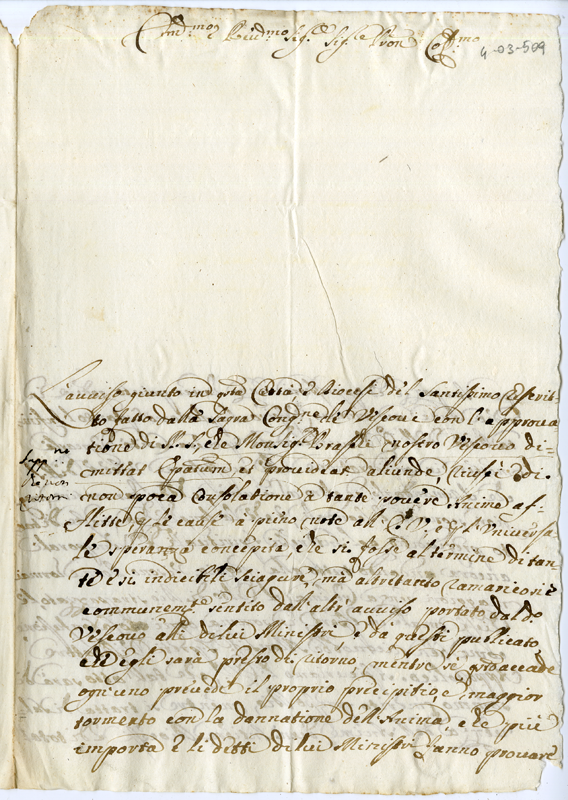 Em.mo e Rev.mo Sig.re Sig.re Pron Col.mo
4-03-509
L'avviso giunto in q.sta Città e Diocesi del Santissimo rescrit-
to fatto dalla Sagra Cong.ne de Vescovi con l'approva
tione di N. S. che Monsig.r nostro Vescovo di-
mittat Epatum et provideat aliunde, riuscì di
non poca Consolatione a tante povere Anime af-
flitte p le cause a pieno note all' E. V. e p l'universa
le speranza concepita, che si fosse al termine di tan
te e sì indicibili sciagure, mà altretanto ramarico è
communem.te sentito dall'altr' avviso portato dal do
Vescovo alli di lui Ministri, e da questi publicato,
ch' Egli sarà presto di ritorno, mentre si
ogn'uno prevede il proprio precipitio, e maggior
tormento con la dannatione dell'Anima, e che più
importa è li detti di lui Ministri fanno provare